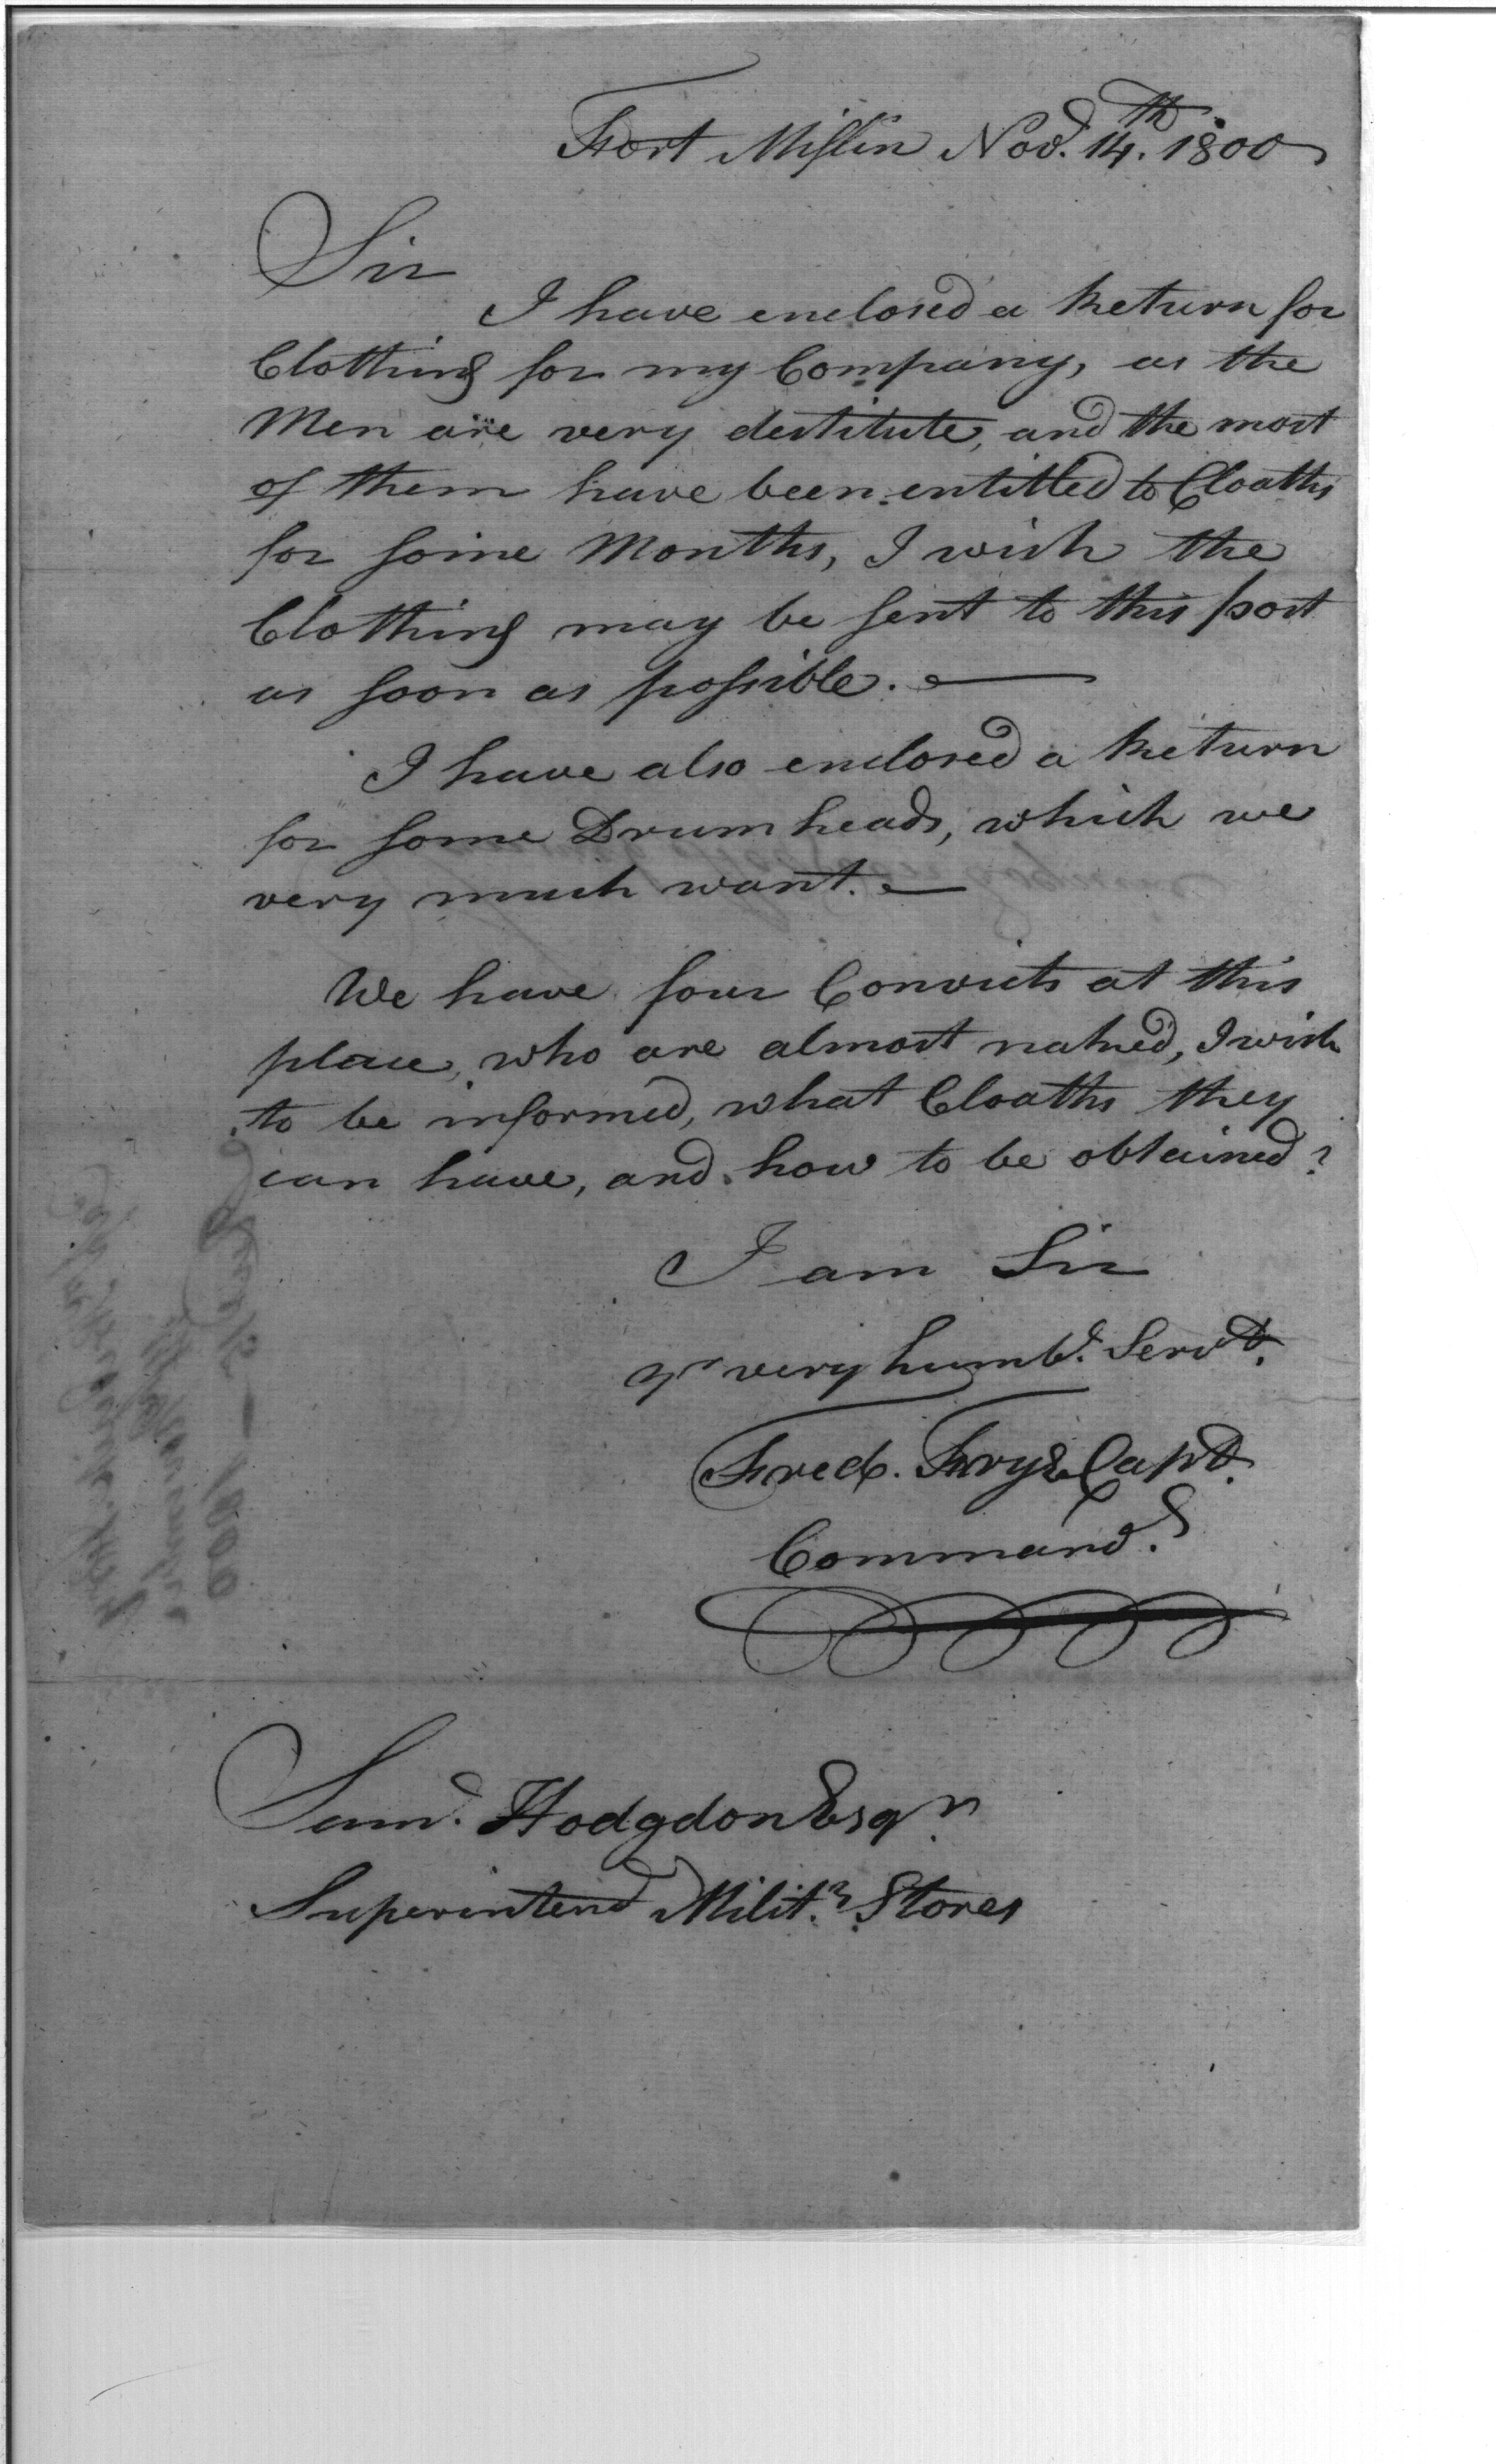 Fort Mifflin Nov. 14th. 1800
Sir
I have enclosed a Return for
Clothing for my Company, as the
Men are very destitute, and the most
of them have been entitled to Cloaths
for some Months, I wish the
Clothing may be sent to this post
as soon as possible. —
I have also enclosed a Return
for some Drum heads, which we
very much want. —
We have four Convicts at this
place, who are almost naked, I wish
to be informed, what Cloaths they
can have, and how to be obtained?
I am Sir
yr very humbl. Servt.
Fredk. Frye Capt.
Command.g
Saml. Hodgdon Esqr.
Superintend Mility. Stores